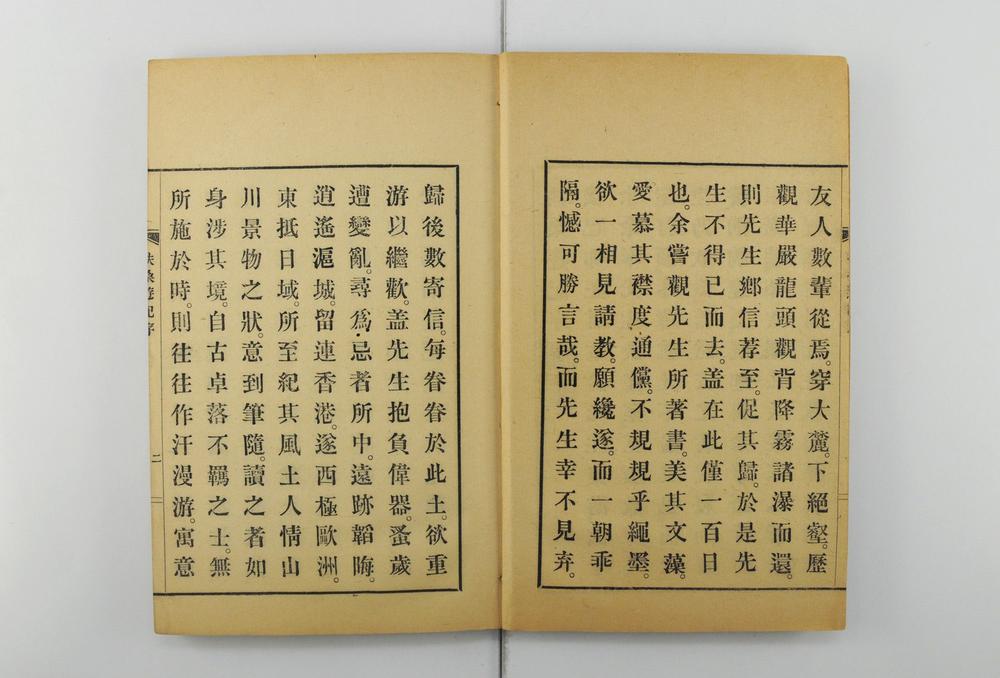 友人數輩從焉。穿大麓。下絕壑。歷
觀華嚴龍頭觀背降霧諸瀑而還。
則先生鄉信荐至。促其歸。於是先
生不得已而去。蓋在此僅一百日
也。余嘗觀先生所著書。美其文藻。
愛慕其襟度通儻。不規規乎繩墨。
欲一相見請教。願纔遂。而一朝乖
隔。憾可勝言哉。而先生幸不見弃。
歸後數寄信。每眷眷於此土。欲重
游以繼歡。蓋先生抱負偉器。蚤歲
遭變亂。尋爲忌者所中。遠跡韜晦。
逍遙滬城。留連香港。遂西極歐洲。
東抵日域。所至紀其風土人情山
川景物之狀。意到筆隨。讀之者如
身涉其境。自古卓落不羈之士。無
所施於時。則往往作汗漫游。寓意
扶桑遊記序
二